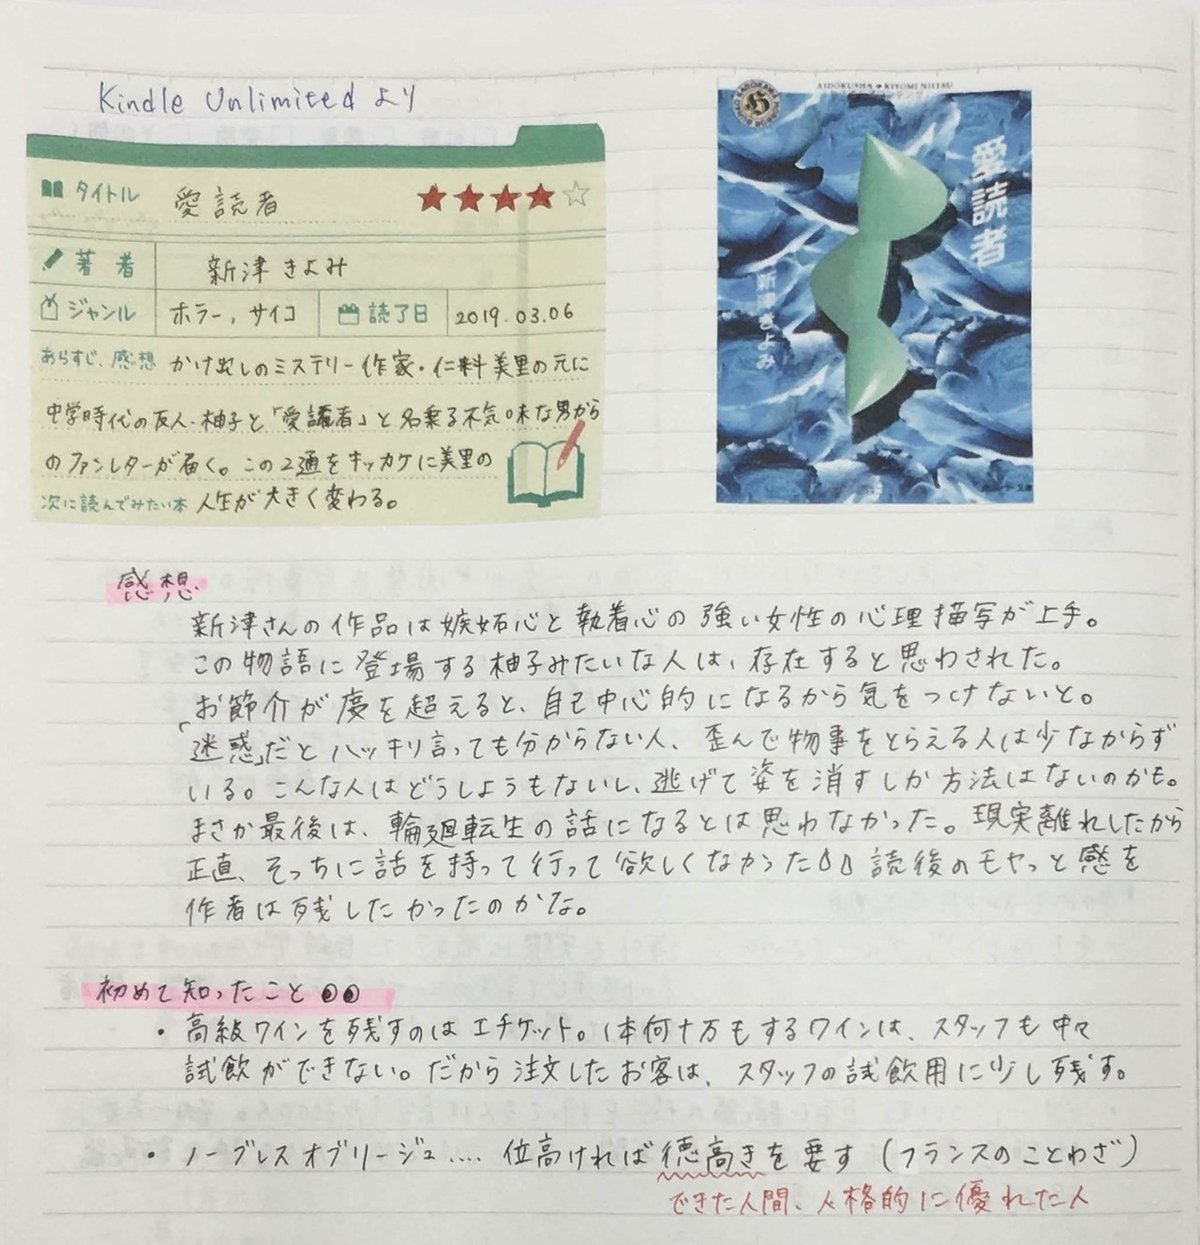 Kindle Unlimitedより
タイトル 愛読者 ★★★★☆
著者 新津きよみ
ジャンル ホラー,サイコ 読了日 2019.03.06
あらすじ、感想 かけ出しのミステリー作家・仁科美里の元に
中学時代の友人・柚子と「愛読者」と名乗る不気味な男から
のファンレターが届く。この2通をキッカケに美里の
次に読んでみたい本 人生が大きく変わる。
AIDOKUSHA ◆ KIYOMI NIITSU
愛読者
新津きよみ
感想
新津さんの作品は嫉妬心と執着心の強い女性の心理描写が上手。
この物語に登場する柚子みたいな人は、存在すると思わされた。
お節介が度を超えると、自己中心的になるから気をつけないと。
「迷惑」だとハッキリ言っても分からない人、歪んで物事をとらえる人は少なからず
いる。こんな人はどうしようもないし、逃げて姿を消すしか方法はないのかも。
まさか最後は、輪廻転生の話になるとは思わなかった。現実離れしたから
正直、そっちに話を持って行って欲しくなかった 読後のモヤっと感を
作者は残したかったのかな。
初めて知ったこと
・高級ワインを残すのはエチケット。1本何十万もするワインは、スタッフも中々
試飲ができない。だから注文したお客は、スタッフの試飲用に少し残す。
・ノーブレスオブリージュ.... 位高ければ徳高きを要す(フランスのことわざ)
できた人間、人格的に優れた人